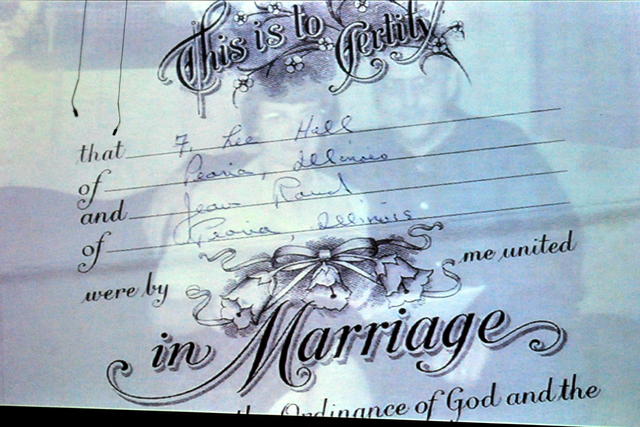 This is to Certify
that F. Lee Hall
of Peoria, Illinois
and Jean Rand
of Peoria, Illinois
were by me united
in Marriage
the Ordinance of God and the